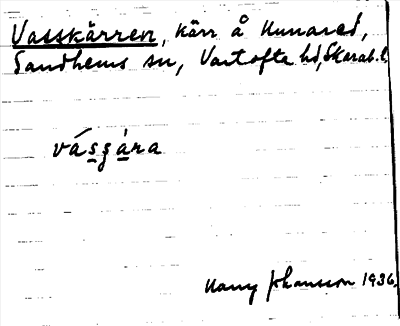 Vasskärren, kärr å Kunared,
Sandhems sn, Vartofta hd, Skarab. l.
vássʒára
Harry Johansson 1936.